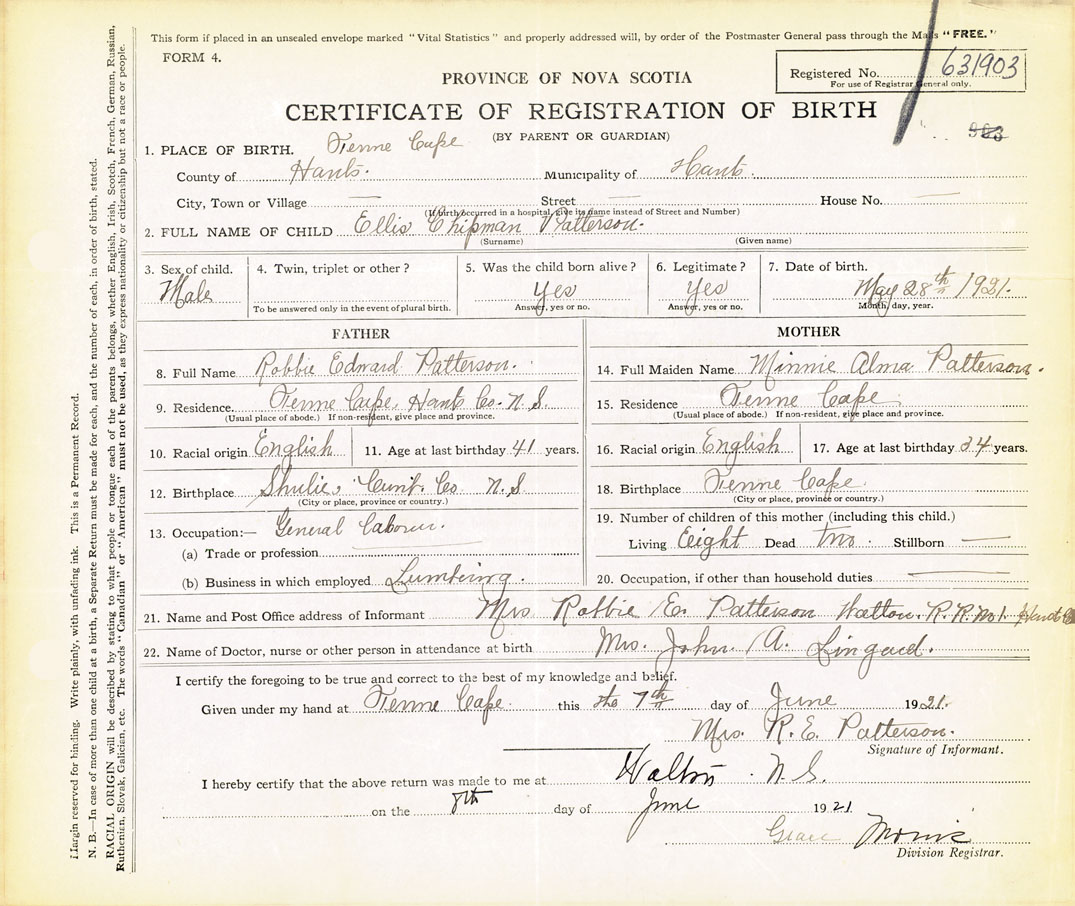 This form if placed in an unsealed envelope marked "Vital Statistics" and properly addressed will, by order of the Postmaster General pass through the Mails "FREE."
FORM 4.
PROVINCE OF NOVA SCOTIA
Registered No. 631903
For use of Registrar General only.
CERTIFICATE OF REGISTRATION OF BIRTH
(BY PARENT OR GUARDIAN)
903
1. PLACE OF BIRTH. Tenne Cape
County of Hants. Municipality of Hants.
City, Town or Village — Street — House No. —
(If birth occurred in a hospital, give its name instead of Street and Number)
2. FULL NAME OF CHILD Ellis Chipman Patterson.
(Surname) (Given name)
3. Sex of child. Male
4. Twin, triplet or other?
To be answered only in the event of plural birth.
5. Was the child born alive? yes
Answer, yes or no.
6. Legitimate? yes
Answer, yes or no.
7. Date of birth. May 28th 1921.
Month, day, year.
FATHER
8. Full Name Robbie Edward Patterson.
9. Residence. Tenne Cape, Hants Co. N.S.
(Usual place of abode.) If non-resident, give place and province.
10. Racial origin English 11. Age at last birthday 41 years.
12. Birthplace Shulie, Cumb. Co. N.S.
(City or place, province or country.)
13. Occupation:— General Laborer.
(a) Trade or profession
(b) Business in which employed Lumbering.
MOTHER
14. Full Maiden Name Minnie Alma Patterson.
15. Residence Tenne Cape
(Usual place of abode.) If non-resident, give place and province.
16. Racial origin English 17. Age at last birthday 34 years.
18. Birthplace Tenne Cape
(City or place, province or country.)
19. Number of children of this mother (including this child.)
Living Eight Dead two. Stillborn —
20. Occupation, if other than household duties —
21. Name and Post Office address of Informant Mrs Robbie E. Patterson Walton. R.R. No 1. Hants Co
22. Name of Doctor, nurse or other person in attendance at birth Mrs. John A. Lingard.
I certify the foregoing to be true and correct to the best of my knowledge and belief.
Given under my hand at Tenne Cape this the 7th day of June 1921.
Mrs. R. E. Patterson.
Signature of Informant.
I hereby certify that the above return was made to me at Walton. N.S.
on the 8th day of June 1921
Grace Morris
Division Registrar.
Margin reserved for binding. Write plainly, with unfading ink. This is a Permanent Record.
N. B.—In case of more than one child at a birth, a Separate Return must be made for each, and the number of each, in order of birth, stated.
RACIAL ORIGIN will be described by stating to what people or tongue each of the parents belongs, whether English, Irish, Scotch, French, German, Russian,
Ruthenian, Slovak, Galician, etc. The words "Canadian" or "American" must not be used, as they express nationality or citizenship but not a race or people.